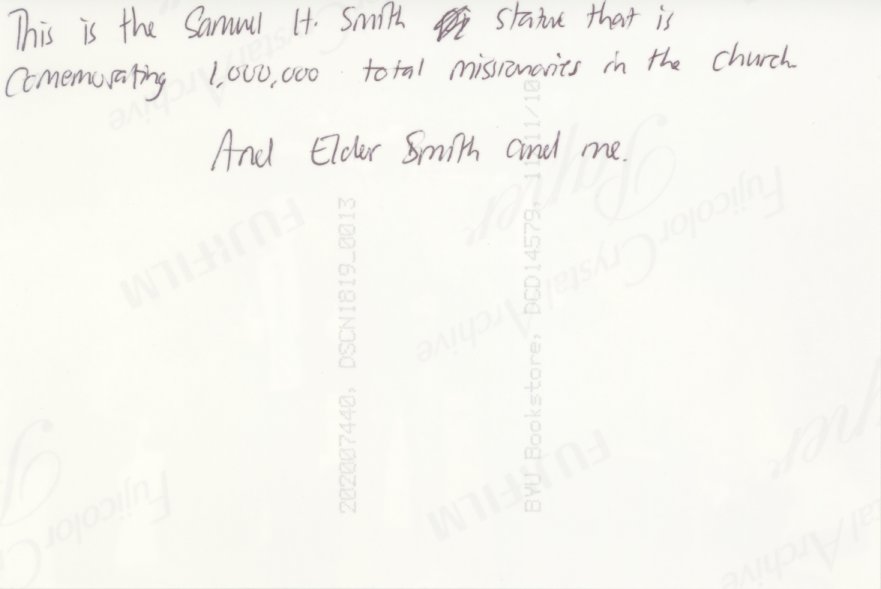 This is the Samuel H. Smith statue that is
Comemorating 1,000,000 total missionaries in the church.
And Elder Smith and me.
202007440, DSCN1819_0013
BYU Bookstore, DCD14579, 11/11/10
FUJIFILM
Fujicolor Crystal Archive
Paper
FUJIFILM